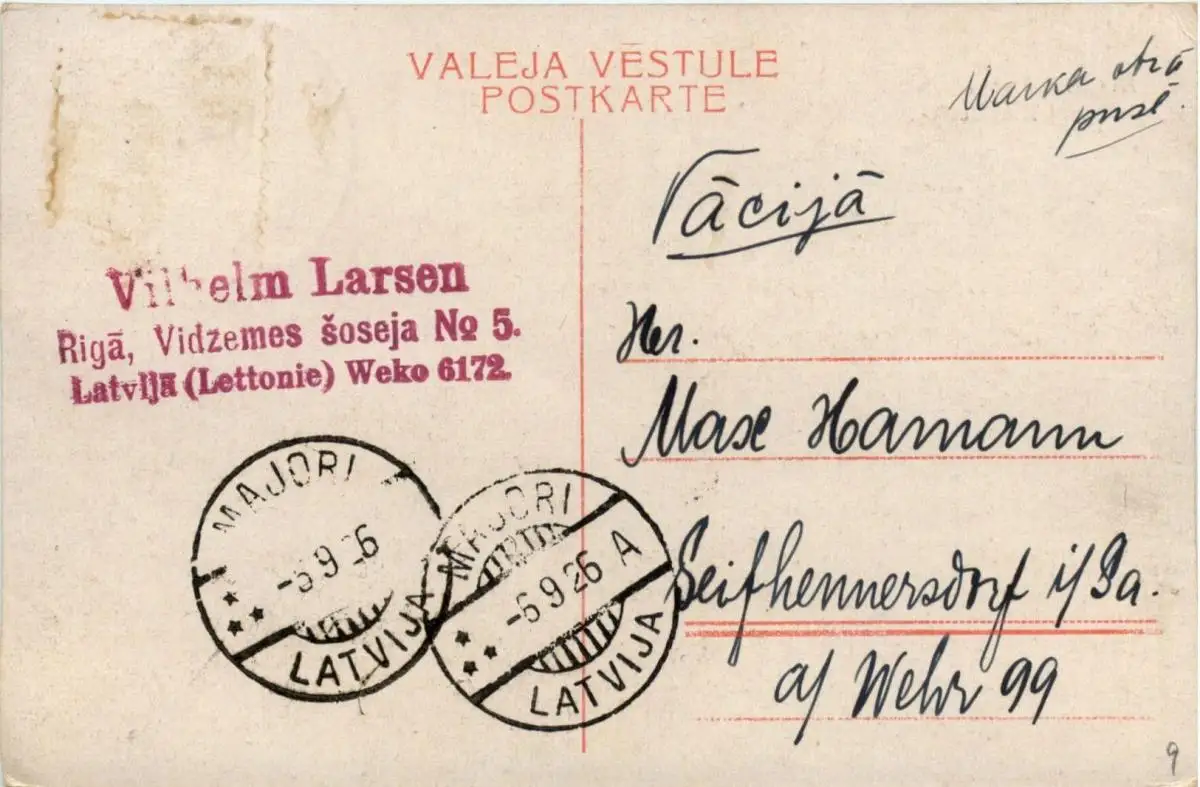 VALEJA VĒSTULE
POSTKARTE
Marka otrā
pusē.
Vācijā
Vilhelm Larsen
Rigā, Vidzemes šoseja № 5.
Latvijā (Lettonie) Weko 6172.
Her.
Max Hamann
Seifhennersdorf i/Sa.
a/ Wehr 99
MAJORI
-6 9 26
LATVIJA
MAJORI
-6 9 26 A
LATVIJA
9